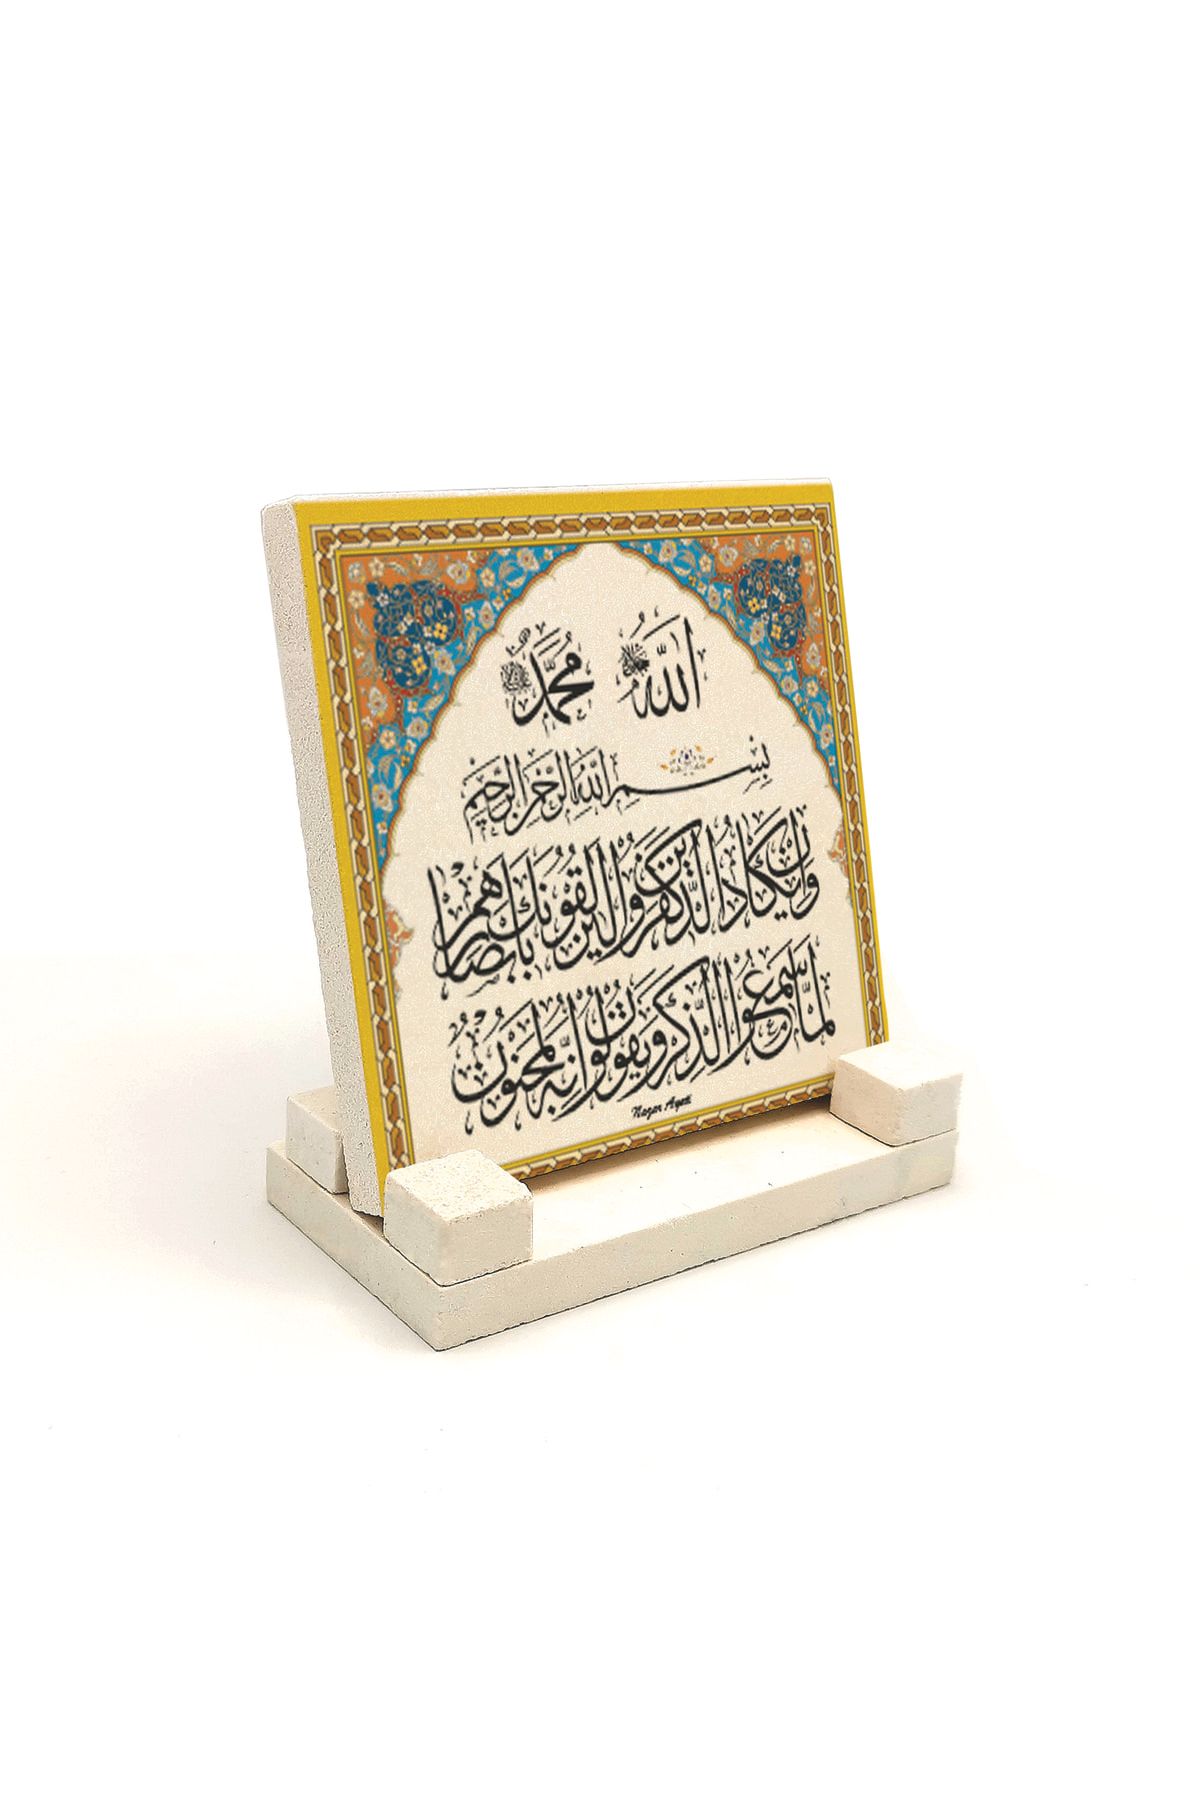 الله جل جلاله محمد
بِسْمِ اللهِ الرَّحْمٰنِ الرَّحِيمِ
وَاِنْ يَكَادُ الَّذ۪ينَ كَفَرُوا لَيُزْلِقُونَكَ بِاَبْصَارِهِمْ
لَمَّا سَمِعُوا الذِّكْرَ وَيَقُولُونَ اِنَّهُ لَمَجْنُونٌ
Nazar Ayeti